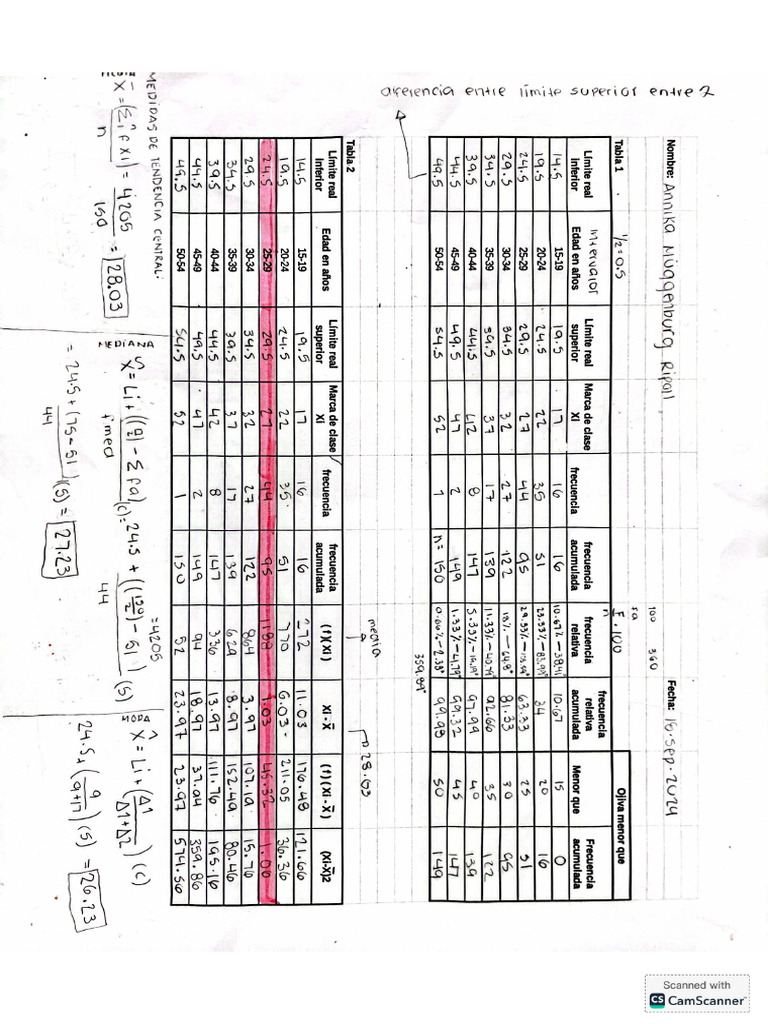 diferencia entre límite superior entre 2
Nombre: Annika Müggenburg Ripoll Fecha: 18. Sep. 2024
Tabla 1 1/2 = 0.5 100 360
fa F . 100
n
Límite real inferior Edad en años Intervalor Límite real superior Marca de clase XI frecuencia frecuencia acumulada frecuencia relativa frecuencia relativa acumulada Ojiva menor que
Menor que Frecuencia acumulada
14.5 15-19 19.5 17 16 16 10.67% - 38.41 10.67 15 0
19.5 20-24 24.5 22 35 51 23.33% - 83.99° 34 20 16
24.5 25-29 29.5 27 44 95 29.33% 63.33 25 51
29.5 30-34 34.5 32 27 122 18% - 64.8° 81.33 30 95
34.5 35-39 39.5 37 17 139 11.33% - 40.79 92.66 35 122
39.5 40-44 44.5 42 8 147 5.33% - 19.19° 97.99 40 139
44.5 45-49 49.5 47 2 149 1.33% - 4.79° 99.32 45 147
49.5 50-54 54.5 52 1 n= 150 0.66% - 2.38° 99.98 50 149
359.89°
media 28.03
Tabla 2
Límite real inferior Edad en años Límite real superior Marca de clase XI frecuencia frecuencia acumulada (f)(XI) XI - X̄ (f)(XI - X̄) (XI-X̄)2
14.5 15-19 19.5 17 16 16 272 11.03 176.48 121.66
19.5 20-24 24.5 22 35 51 770 6.03 211.05 36.36
24.5 25-29 29.5 27 44 95 1188 1.03 45.32 1.06
29.5 30-34 34.5 32 27 122 864 3.97 107.19 15.76
34.5 35-39 39.5 37 17 139 629 8.97 152.49 80.46
39.5 40-44 44.5 42 8 147 336 13.97 111.76 195.16
44.5 45-49 49.5 47 2 149 94 18.97 37.94 359.86
49.5 50-54 54.5 52 1 150 52 23.97 23.97 574.56
=4205
MEDIDAS DE TENDENCIA CENTRAL:
MEDIA
X̄ = (Σ f XI) / n = 4205 / 150 = 28.03
MEDIANA
X = Li + ((n/2) - Σ fa) / f med (c) = 24.5 + ((150/2) - 51) / 44 (5)
= 24.5 + (75 - 51) / 44 (5) = 27.23
MODA
X̂ = Li + (Δ1 / Δ1 + Δ2) (c)
24.5 + (9 / 9+17) (5) = 26.23
Scanned with
CS CamScanner